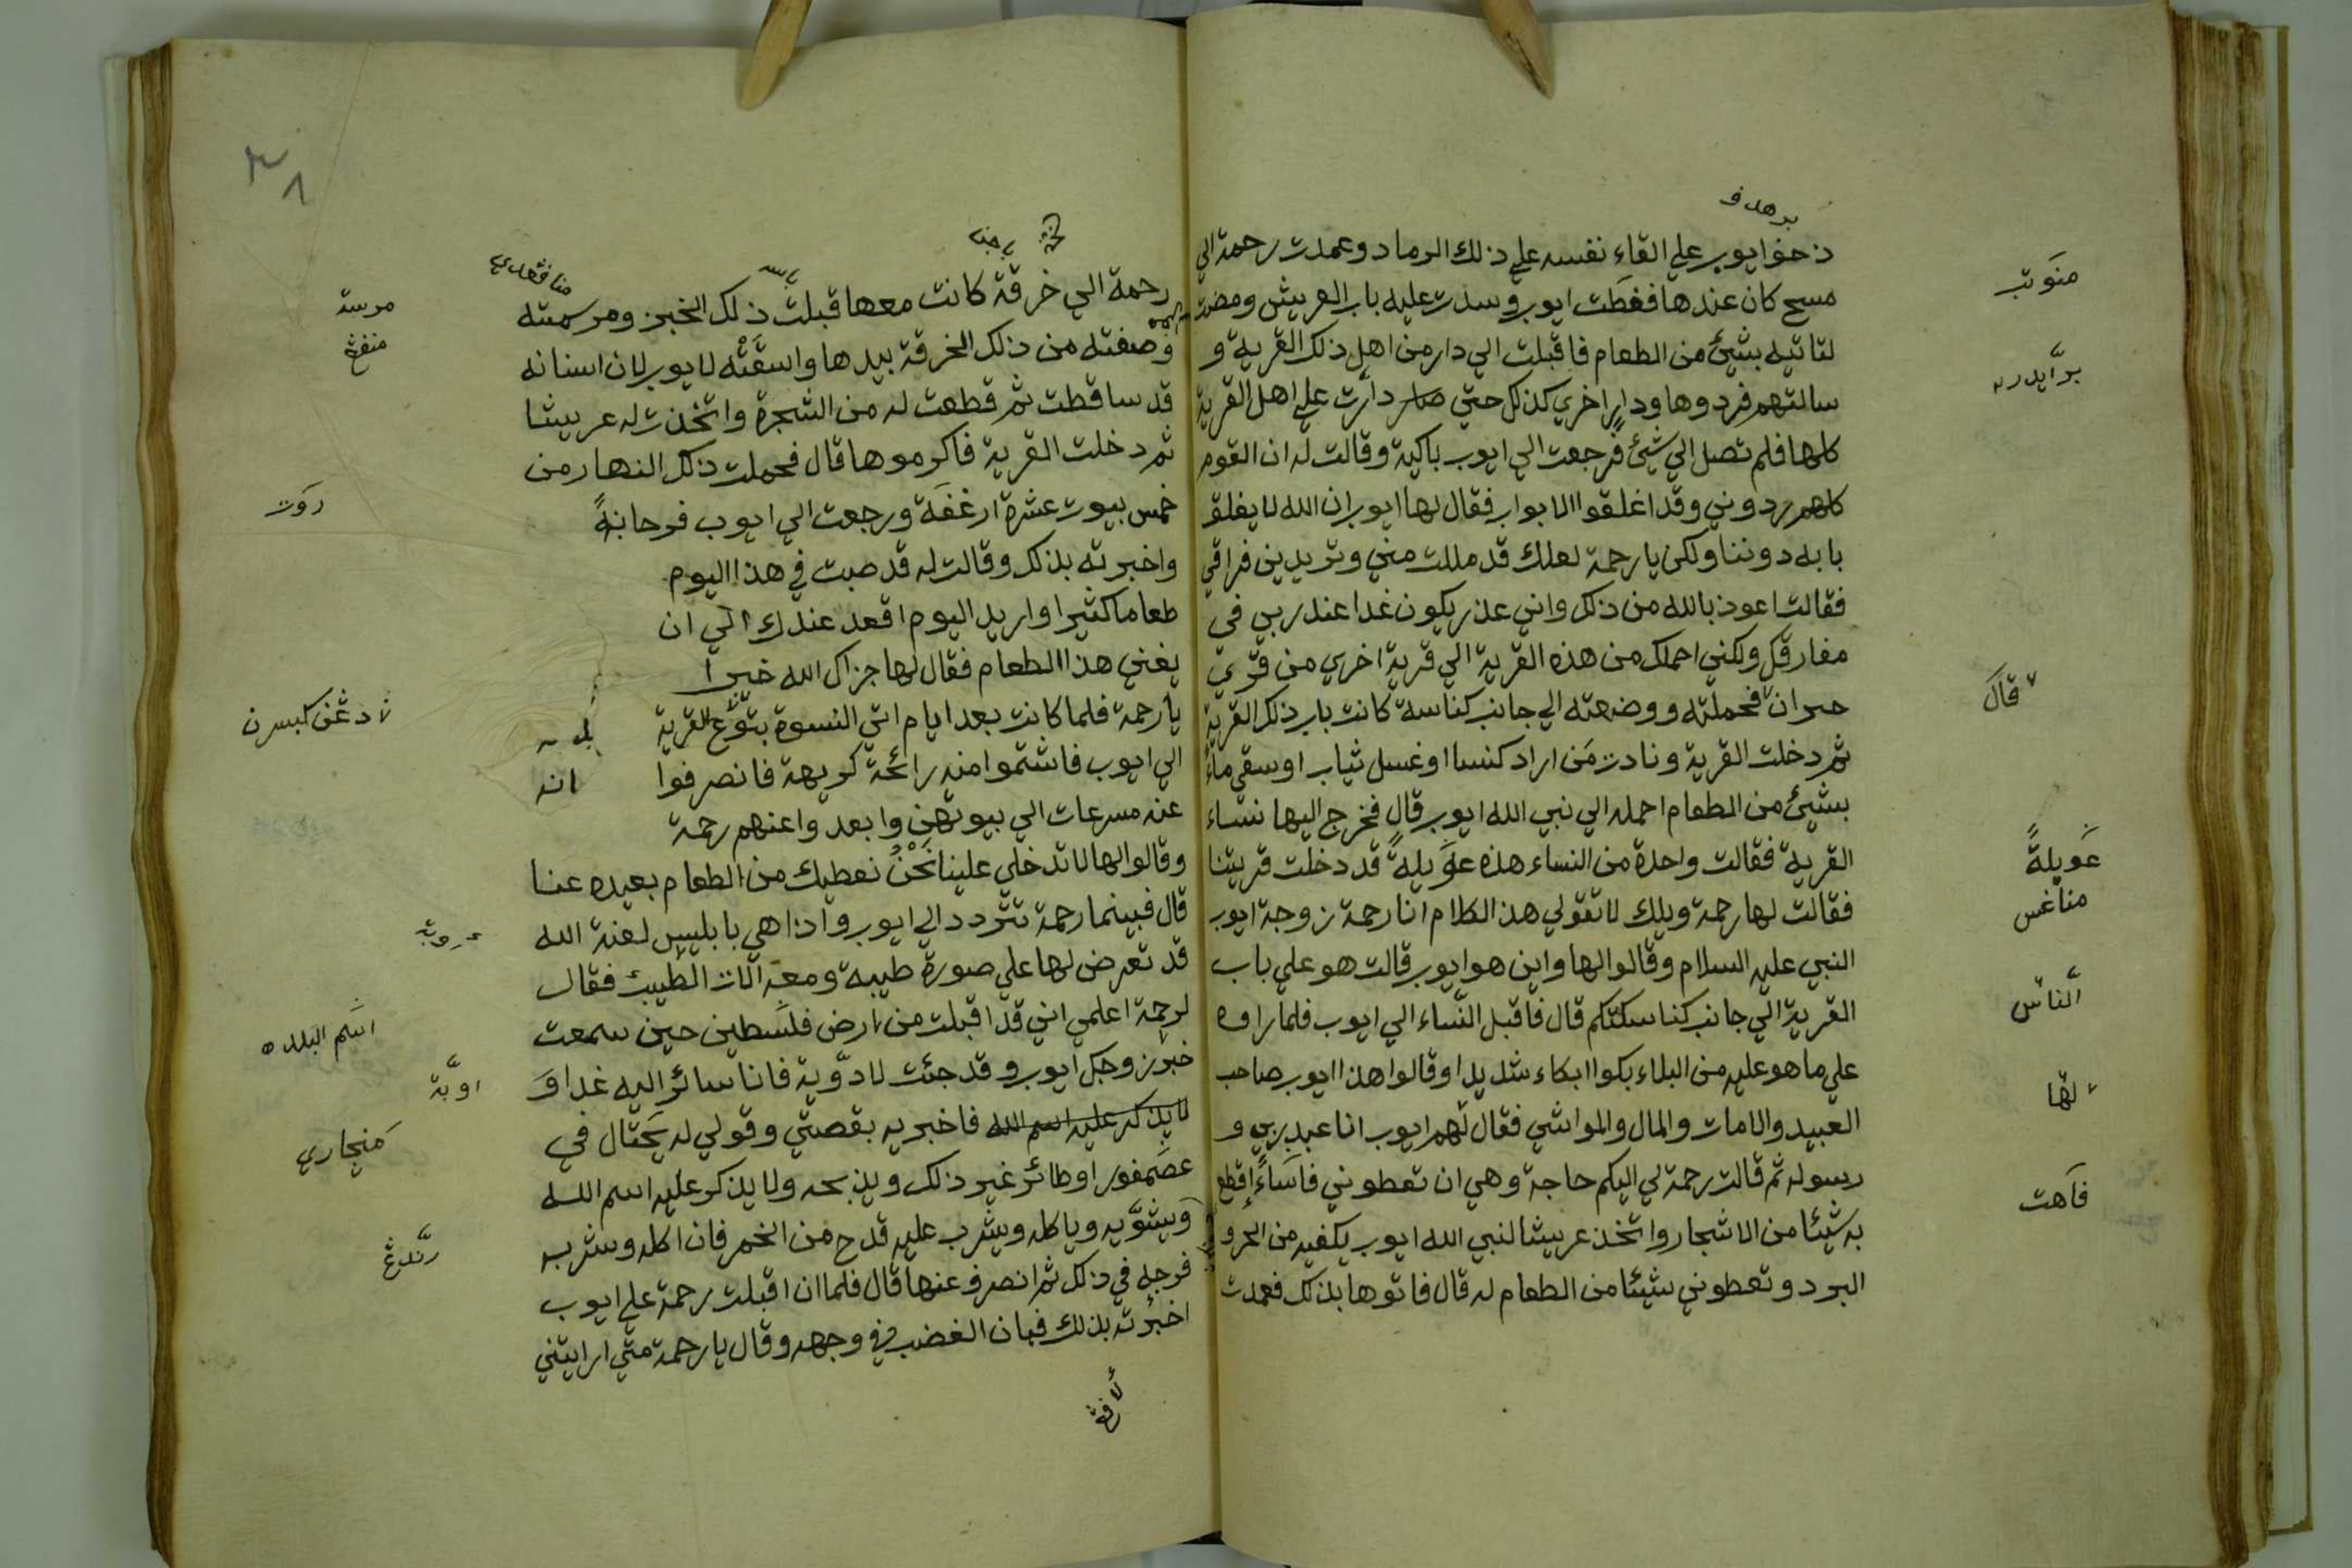 برهدف
ذحف ايوب علي القاء نفسه علي ذلك الرماد وعمدت رحمة الي
مسح كان عندها فغطت ايوب وسدت عليه باب العريش ومضت
لتاتيه بشيئ من الطعام فاقبلت الي دار من اهل ذلك القرية و
سالتهم فردوها ودارا اخري كذلك حتي دارت علي اهل القرية
كلها فلم تصل الي شيئ فرجعت الي ايوب باكية وقالت له ان القوم
كلهم ردوني وقد اغلقوا الابواب فقال لها ايوب ان الله لا يغلق
بابه دوننا ولكن يا رحمة لعلك قد مللت مني وتريدين فراقي
فقالت اعوذ بالله من ذلك واني عذر يكون غدا عند ربي في
مفارقك ولكني احملك من هذه القرية الي قرية اخري من قري
حوران فحملته ووضعته الي جانب كناسة كانت باب ذلك القرية
ثم دخلت القرية ونادت من اراد كنسا او غسل ثياب او سقي ماء
بشيئ من الطعام احمله الي نبي الله ايوب قال فخرج اليها نساء
القرية فقالت واحدة من النساء هذه عويلة قد دخلت قريتنا
فقالت لها رحمة ويلك لا تقولي هذ الكلام انا رحمة زوجة ايوب
النبي عليه السلام وقالوا لها واين هو ايوب قالت هو علي باب
القرية الي جانب كناستكم قال فاقبل النساء الي ايوب فلما راوه
علي ما هو عليه من البلاء بكوا ابكاء شديدا وقالوا هذا ايوب صاحب
العبيد والامات والمال والمواشي فقال لهم ايوب انا عبد ربي و
رسوله ثم قالت رحمة لي اليكم حاجة وهي ان تعطوني فاساء اقطع
به شيئا من الاشجار واتخذ عريشا لنبي الله ايوب يكفيه من الحر و
البرد وتعطوني شيئا من الطعام له قال فاتوها بذلك فعمدت
منوتب
برايدره
قال
عويلة
مناغس
الناس
لها
فاهت
رحمة الي خرقة كانت معها قبلت ذلك الخبز ومرسته
وصفته من ذلك الخرقة بيدها واسقته لايوب لان اسنانه
قد ساقطت ثم قطعت له من الشجرة واتخذت له عريشا
ثم دخلت القرية فاكرموها قال فحملت ذلك النهار من
خمس بيوت عشرة ارغفة ورجعت الي ايوب فرحانة
واخبرته بذلك وقالت له قد صبت في هذا اليوم
طعاما كثيرا واريد اليوم اقعد عندك الي ان
يغني هذا الطعام فقال لها جزاك الله خيرا
يا رحمة فلما كانت بعد ايام اتي النسوة بتوع القرية
الي ايوب فاشتموا منه رائحة كريهة فانصرفوا
عنه مسرعات الي بيوتهن وابعد واعنهم رحمة
وقالوا لها لا تدخلي علينا نحن نعطيك من الطعام بعيده عنا
قال فبينما رحمة تتردد الي ايوب واذا هي بابليس لعنة الله
قد تعرض لها علي صورة طيبة ومعه الات الطبيب فقال
لرحمة اعلمي اني قد اقبلت من ارض فلسطين حين سمعت
خبر زوجك ايوب وقد جئت لادوية فانا سائر اليه غدا و
لا يذكر عليه اسم الله فاخبريه بقصتي وقولي له يحتال في
عصفور او طائر غير ذلك ويذبحه ولا يذكر عليه اسم الله
ويشويه وياكله ويشرب عليه قدح من الخمر فان اكله وشرب
فرجله في ذلك ثم انصرف عنها قال فلما ان اقبلت رحمة علي ايوب
اخبرته بذلك فبان الغضب في وجهه وقال يا رحمة متي ارايتني
منافقدي
مرسته
منفغ
روت
دغن كبسرن
انه
اسم البلده
اوبة
منجاري
رندغ